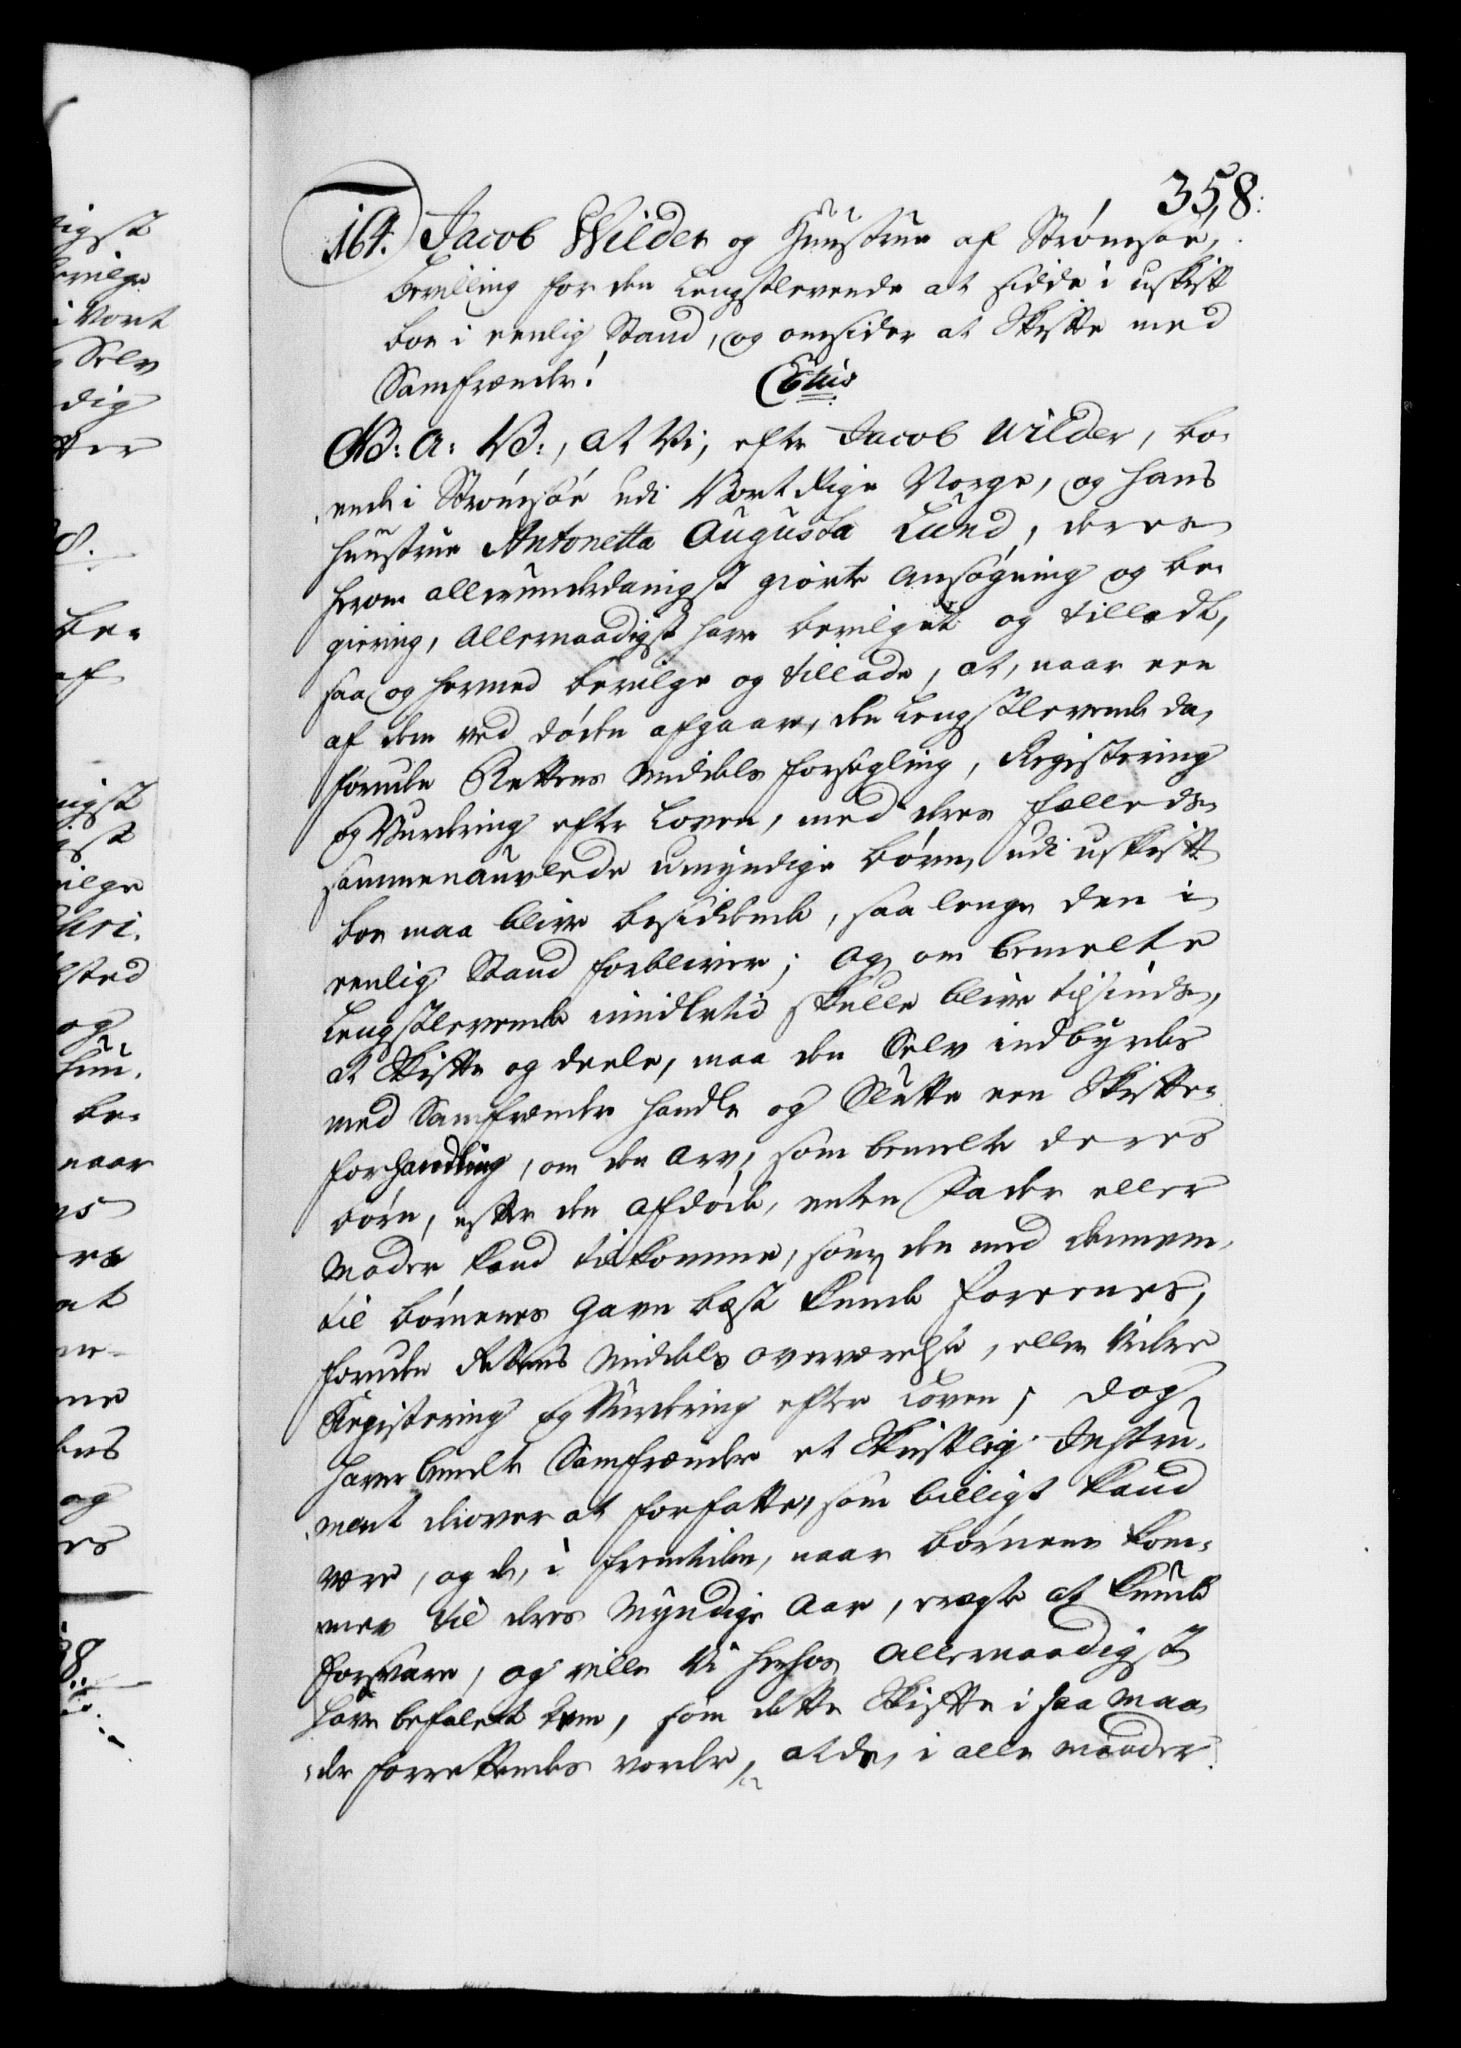 358.
164. Jacob Wilder og Huustrue af Strømsøe,
Bevilling for den Længstlevende at sidde i uskift
boe i eenlig Stand, og omsider at Skifte med
Samfrænder!
G: A: V:, at Vi, efter Jacob Wilder, bo-
ende i Strømsøe udi Vort Rige Norge, og hans
Huustrue Antonetta Augusta Lund, deres
herom allerunderdanigst giorte Ansøgning og be-
giering, Allernaadigst have bevilget og tilladt,
saa og hermed bevilge og tillade, at, naar een
af dem ved døden afgaar, den Længstlevende da,
foruden Rettens Middels forsegling, Registering
og Vurdering efter Loven, med deres fælleds
sammenauvlede umyndige børn, udi uskift
boe maa blive besiddende, saa længe den i
eenlig Stand forbliver; Og om bemelte
Længstlevende imidlertid skulle blive tilsinds,
at Skifte og deele, maa den Selv indbyrdes
med Samfrænder handle og Slutte een Skifte-
forhandling, om den Arv, som bemelte deres
børn, efter den Afdøde, enten Fader eller
Moder kand tilkomme, som den med dennem,
til børnenes Gavn best kunde foreenes,
foruden Rettens Middels overværelse, eller videre
Registering og Vurdering efter Loven; dog
haver bemelte Samfrænder et Skriftlig Instru-
ment derover at forfatte, som billigt kand
være, og de, i fremtiden, naar børnene kom-
mer til deres Myndige Aar, agte at kunde
forsvare, og ville Vi herhos Allernaadigst
have befalet dem, som dette Skifte i saa maa-
der forrettendes vorder, at de, i alle maader